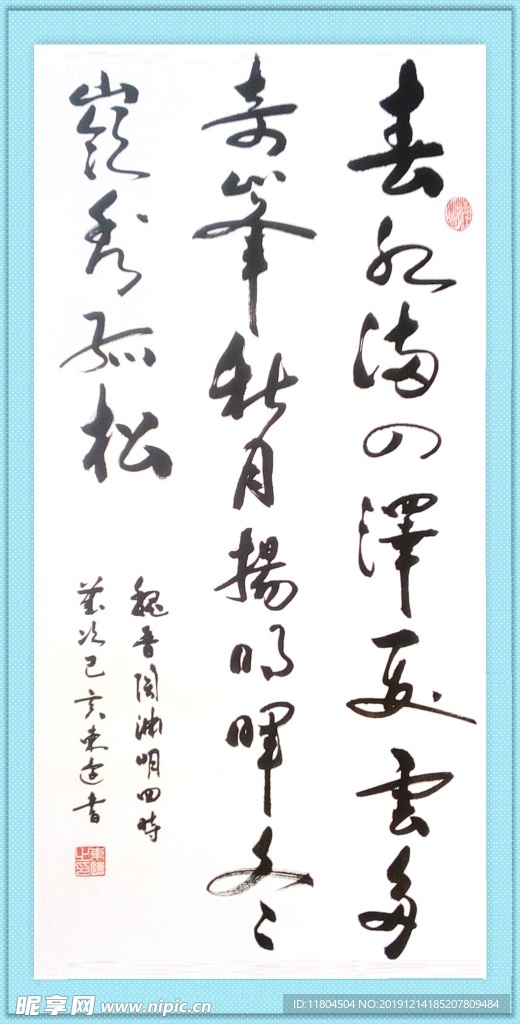 春水满四澤夏雲多
奇峯秋月揚明暉冬
嶺秀孤松
魏晋陶渊明四時
歲次己亥東书
昵享网 www.nipic.cn
ID:11804504 NO:20191214185207809484